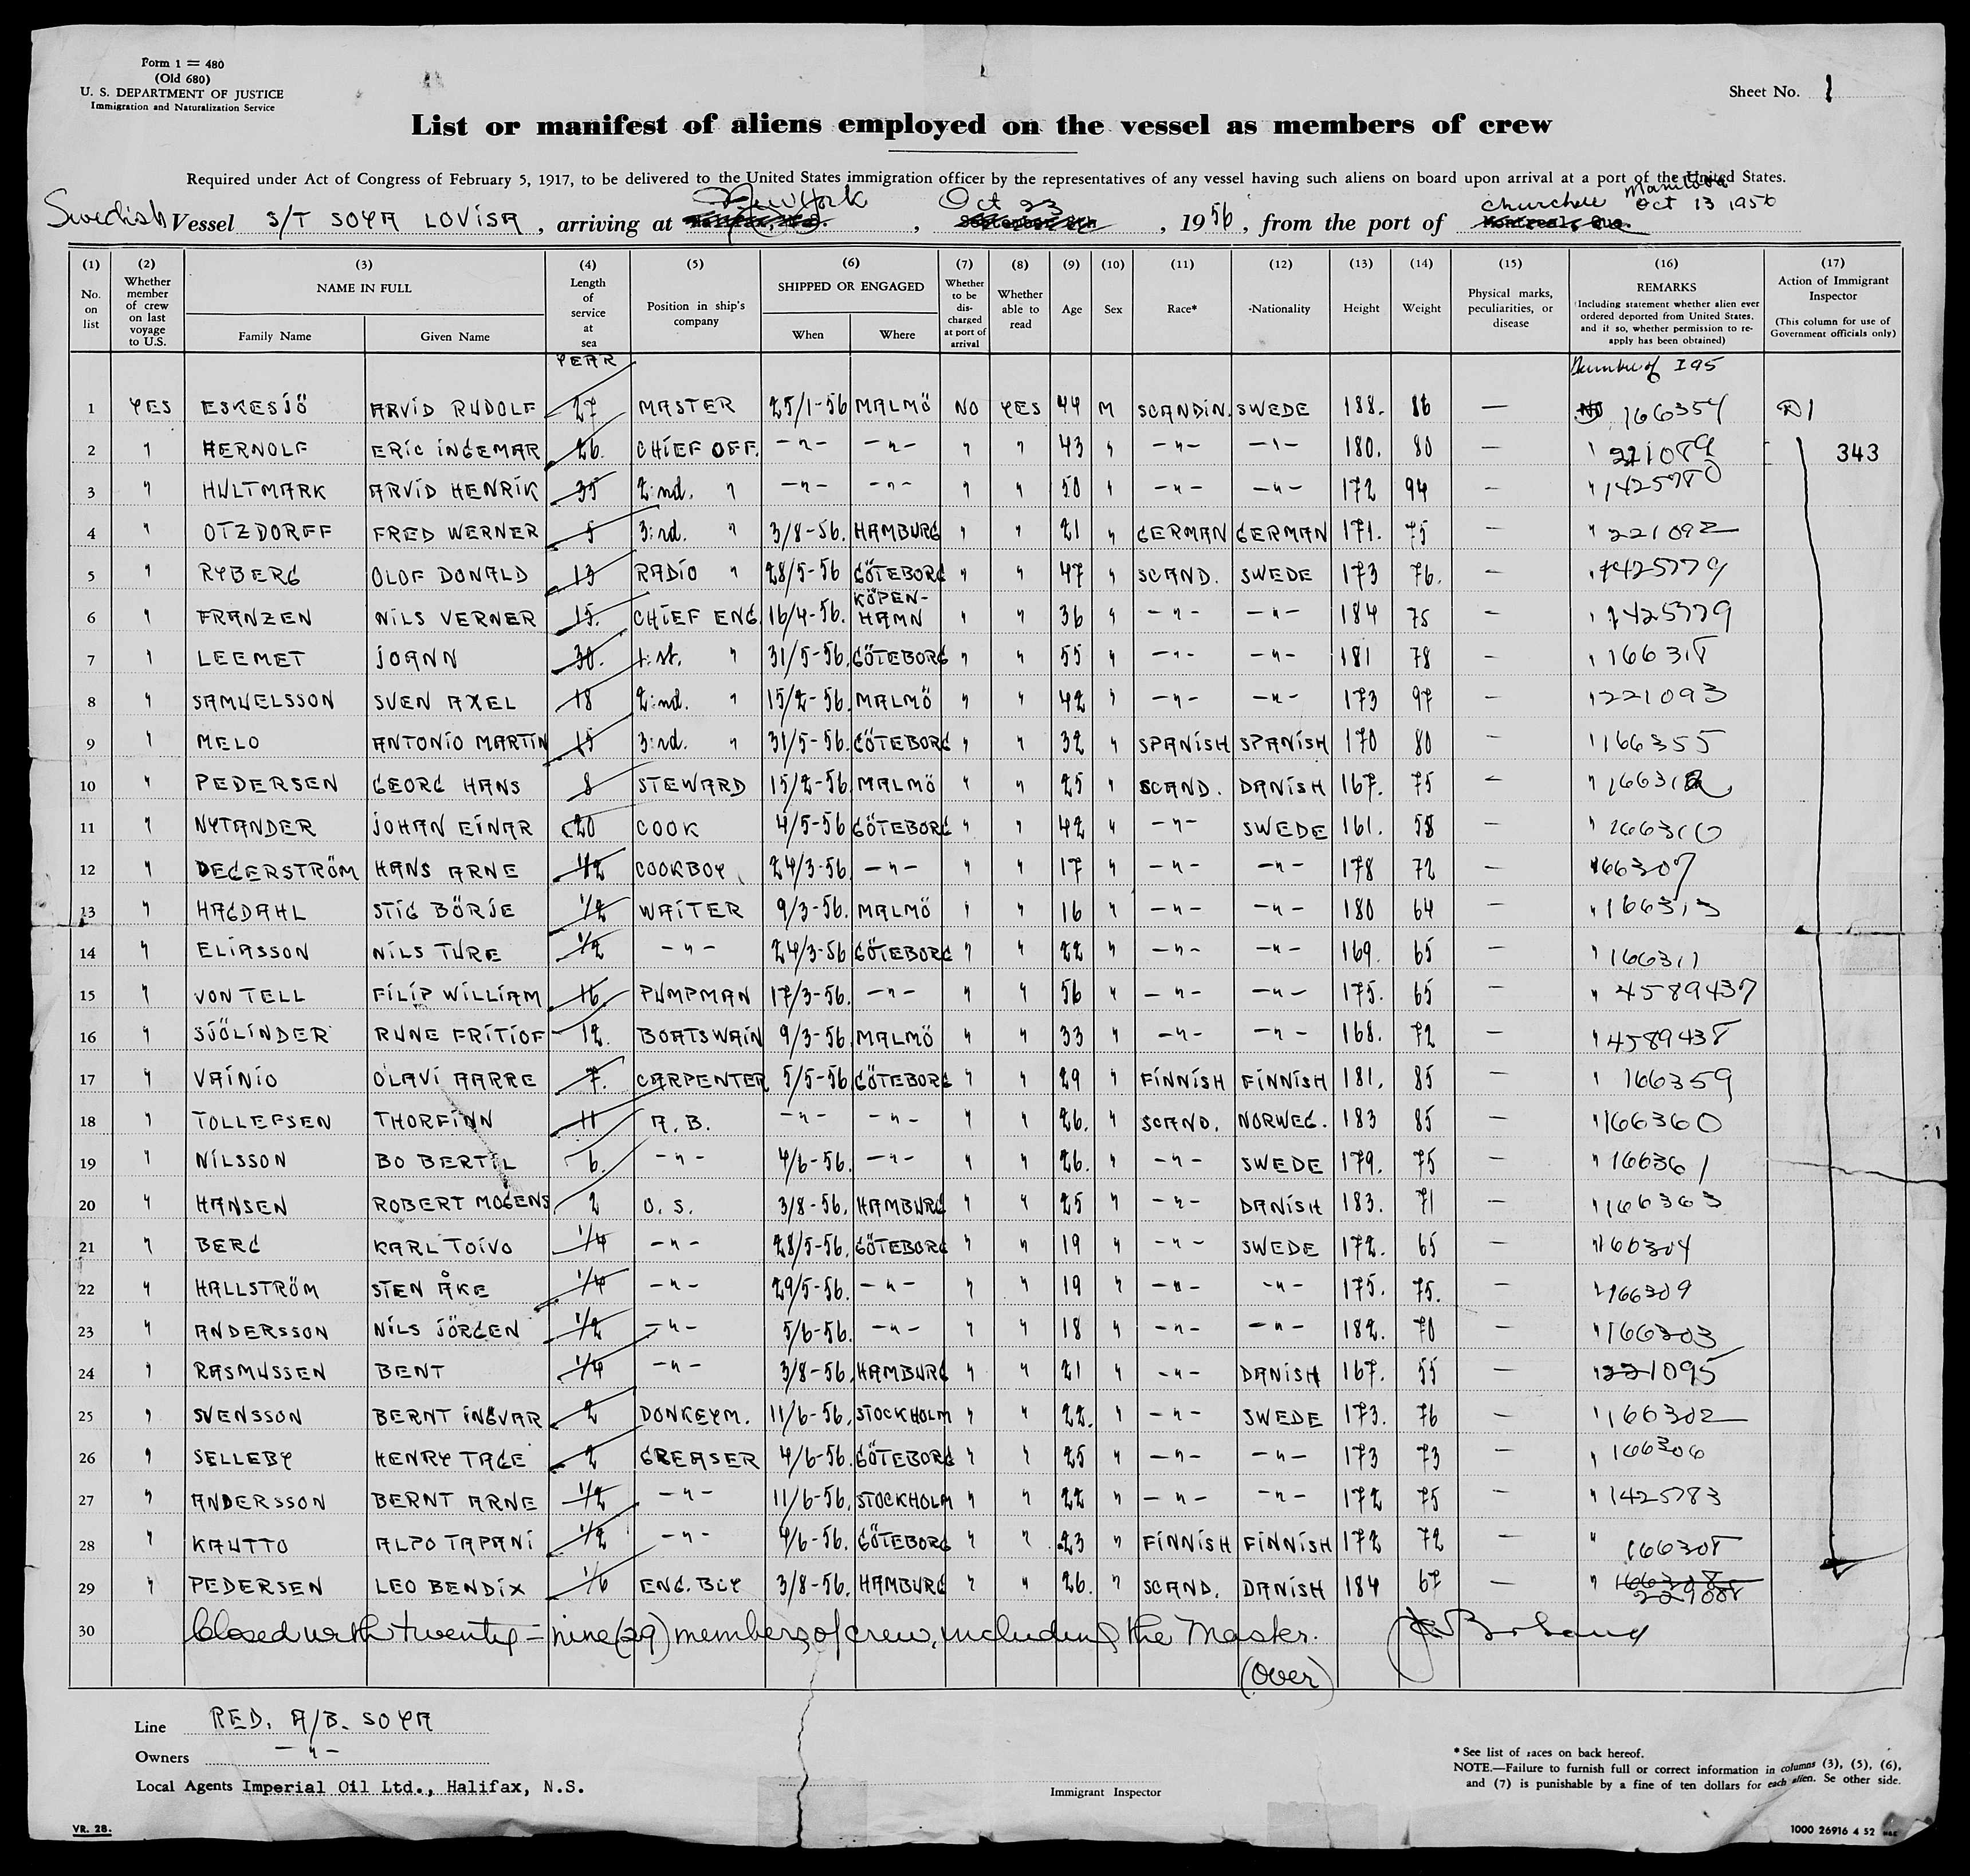 Form 1 = 480
(Old 680)
U. S. DEPARTMENT OF JUSTICE
Immigration and Naturalization Service
Sheet No. 1
List or manifest of aliens employed on the vessel as members of crew
Required under Act of Congress of February 5, 1917, to be delivered to the United States immigration officer by the representatives of any vessel having such aliens on board upon arrival at a port of the United States.
New York Oct 23 Churchill Manitoba Oct 13 1956
Swedish Vessel S/T SOYA LOVISA, arriving at Halifax, N.S., September 8th, 1956, from the port of Montreal, Que.
(1) (2) (3) (4) (5) (6) (7) (8) (9) (10) (11) (12) (13) (14) (15) (16) (17)
No. on list Whether member of crew on last voyage to U.S. NAME IN FULL Family Name Given Name Length of service at sea Position in ship's company SHIPPED OR ENGAGED When Where Whether to be discharged at port of arrival Whether able to read Age Sex Race* Nationality Height Weight Physical marks, peculiarities, or disease REMARKS (Including statement whether alien ever ordered deported from United States, and if so, whether permission to re-apply has been obtained) Action of Immigrant Inspector (This column for use of Government officials only)
YEAR Number of I 95
1 YES ESKESJÖ ARVID RUDOLF 27 MASTER 25/1-56 MALMÖ NO YES 44 M SCANDIN. SWEDE 188. 86 — NO 166354 D1
2 " HERNOLF ERIC INGEMAR 26. CHIEF OFF. -"- -"- " " 43 " -"- -"- 180. 80 — " 221089 343
3 " HULTMARK ARVID HENRIK 35 2:nd. " -"- -"- " " 50 " -"- -"- 172 94 — " 1425780
4 " OTZDORFF FRED WERNER 5 3:rd. " 3/8-56. HAMBURG " " 21 " GERMAN GERMAN 171. 75 — " 221092
5 " RYBERG OLOF DONALD 13 RADIO " 28/5-56 GÖTEBORG " " 47 " SCAND. SWEDE 173 76. — " 1425779
6 " FRANZEN NILS VERNER 15. CHIEF ENG. 16/4-56. KÖPENHAMN " " 36 " -"- -"- 184 75 — "
7 " LEEMET JOANN 30. 1:st. " 31/5-56. GÖTEBORG " " 55 " -"- -"- 181 78 — "
8 " SAMUELSSON SVEN AXEL 18 2:nd. " 15/2-56. MALMÖ " " 42 " -"- -"- 173 97 — " 221093
9 " MELO ANTONIO MARTIN 15 3:rd. " 31/5-56. GÖTEBORG " " 32 " SPANISH SPANISH 170 80 — " 166355
10 " PEDERSEN GEORG HANS 8 STEWARD 15/2-56. MALMÖ " " 25 " SCAND. DANISH 167. 75 — " 166312
11 " NYTANDER JOHAN EINAR 20 COOK 4/5-56 GÖTEBORG " " 42 " -"- SWEDE 161. 58 — " 166310
12 " DEGERSTRÖM HANS ARNE 1/2 COOKBOY 24/3-56. -"- " " 17 " -"- -"- 178 72 — 166307
13 " HAGDAHL STIG BÖRJE 1/2 WAITER 9/3-56. MALMÖ " " 16 " -"- -"- 180 64 — " 166313
14 " ELIASSON NILS TURE 1/2 -"- 24/3-56 GÖTEBORG " " 22 " -"- -"- 169. 65 — " 166311
15 " VON TELL FILIP WILLIAM 16. PUMPMAN 17/3-56. -"- " " 56 " -"- -"- 175. 65 — " 4589437
16 " SJÖLINDER RUNE FRITIOF 12. BOATSWAIN 9/3-56 MALMÖ " " 33 " -"- -"- 168. 72 — " 4589438
17 " VAINIO OLAVI AARRE 7. CARPENTER 5/5-56 GÖTEBORG " " 29 " FINNISH FINNISH 181. 85 — " 166359
18 " TOLLEFSEN THORFINN 11 A.B. -"- -"- " " 26. " SCAND. NORWEG. 183 85 — " 166360
19 " NILSSON BO BERTIL 6. -"- 4/6-56. -"- " " 26. " -"- SWEDE 179. 75 — " 166361
20 " HANSEN ROBERT MOGENS 2 O.S. 3/8-56. HAMBURG " " 25 " -"- DANISH 183. 71 — " 166363
21 " BERG KARL TOIVO 1/4 -"- 28/5-56. GÖTEBORG " " 19 " -"- SWEDE 172. 65 — " 166304
22 " HALLSTRÖM STEN ÅKE 1/4 -"- 29/5-56. -"- " " 19 " -"- -"- 175. 75. — " 166309
23 " ANDERSSON NILS JÖRGEN 1/2 -"- 5/6-56. -"- " " 18 " -"- -"- 182. 70 — " 166303
24 " RASMUSSEN BENT 1/4 -"- 3/8-56. HAMBURG " " 21 " -"- DANISH 167. 55 — " 221095
25 " SVENSSON BERNT INGVAR 2 DONKEYM. 11/6-56. STOCKHOLM " " 22. " -"- SWEDE 173. 76 — " 166302
26 " SELLEBY HENRY TAGE 2 GREASER 4/6-56. GÖTEBORG " " 25 " -"- -"- 173 73 — " 166306
27 " ANDERSSON BERNT ARNE 1/2 -"- 11/6-56. STOCKHOLM " " 22 " -"- -"- 172 75 — " 1425783
28 " KAUTTO ALPO TAPANI 1/2 -"- 4/6-56. GÖTEBORG " " 23 " FINNISH FINNISH 172 72 — " 166308
29 " PEDERSEN LEO BENDIX 1/6 ENG. BOY 3/8-56. HAMBURG " " 26. " SCAND. DANISH 184 67 — "
30 Closed with twenty-nine (29) members of crew, including the Master.
(Over)
Line RED. A/B. SOYA
Owners -"-
Local Agents Imperial Oil Ltd., Halifax, N.S.
Immigrant Inspector
* See list of races on back hereof.
NOTE.—Failure to furnish full or correct information in columns (3), (5), (6), and (7) is punishable by a fine of ten dollars for each alien. Se other side.
VR. 28.
1000 26916 4 52